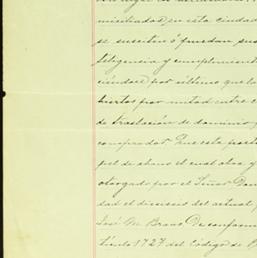 ministrados, en esta ciudad
se susciten ó puedan sus
teligencia y cumplimient
ciéndose, por último que lo
biertos por mitad entre c
de traslación de dominio y
comprador. Que esta parte
pel de abono el cual obra y
otorgado por el Señor Don
dad el dieciseis del actual
José M. Bravo. De conform
tículo 1727 del Código de P